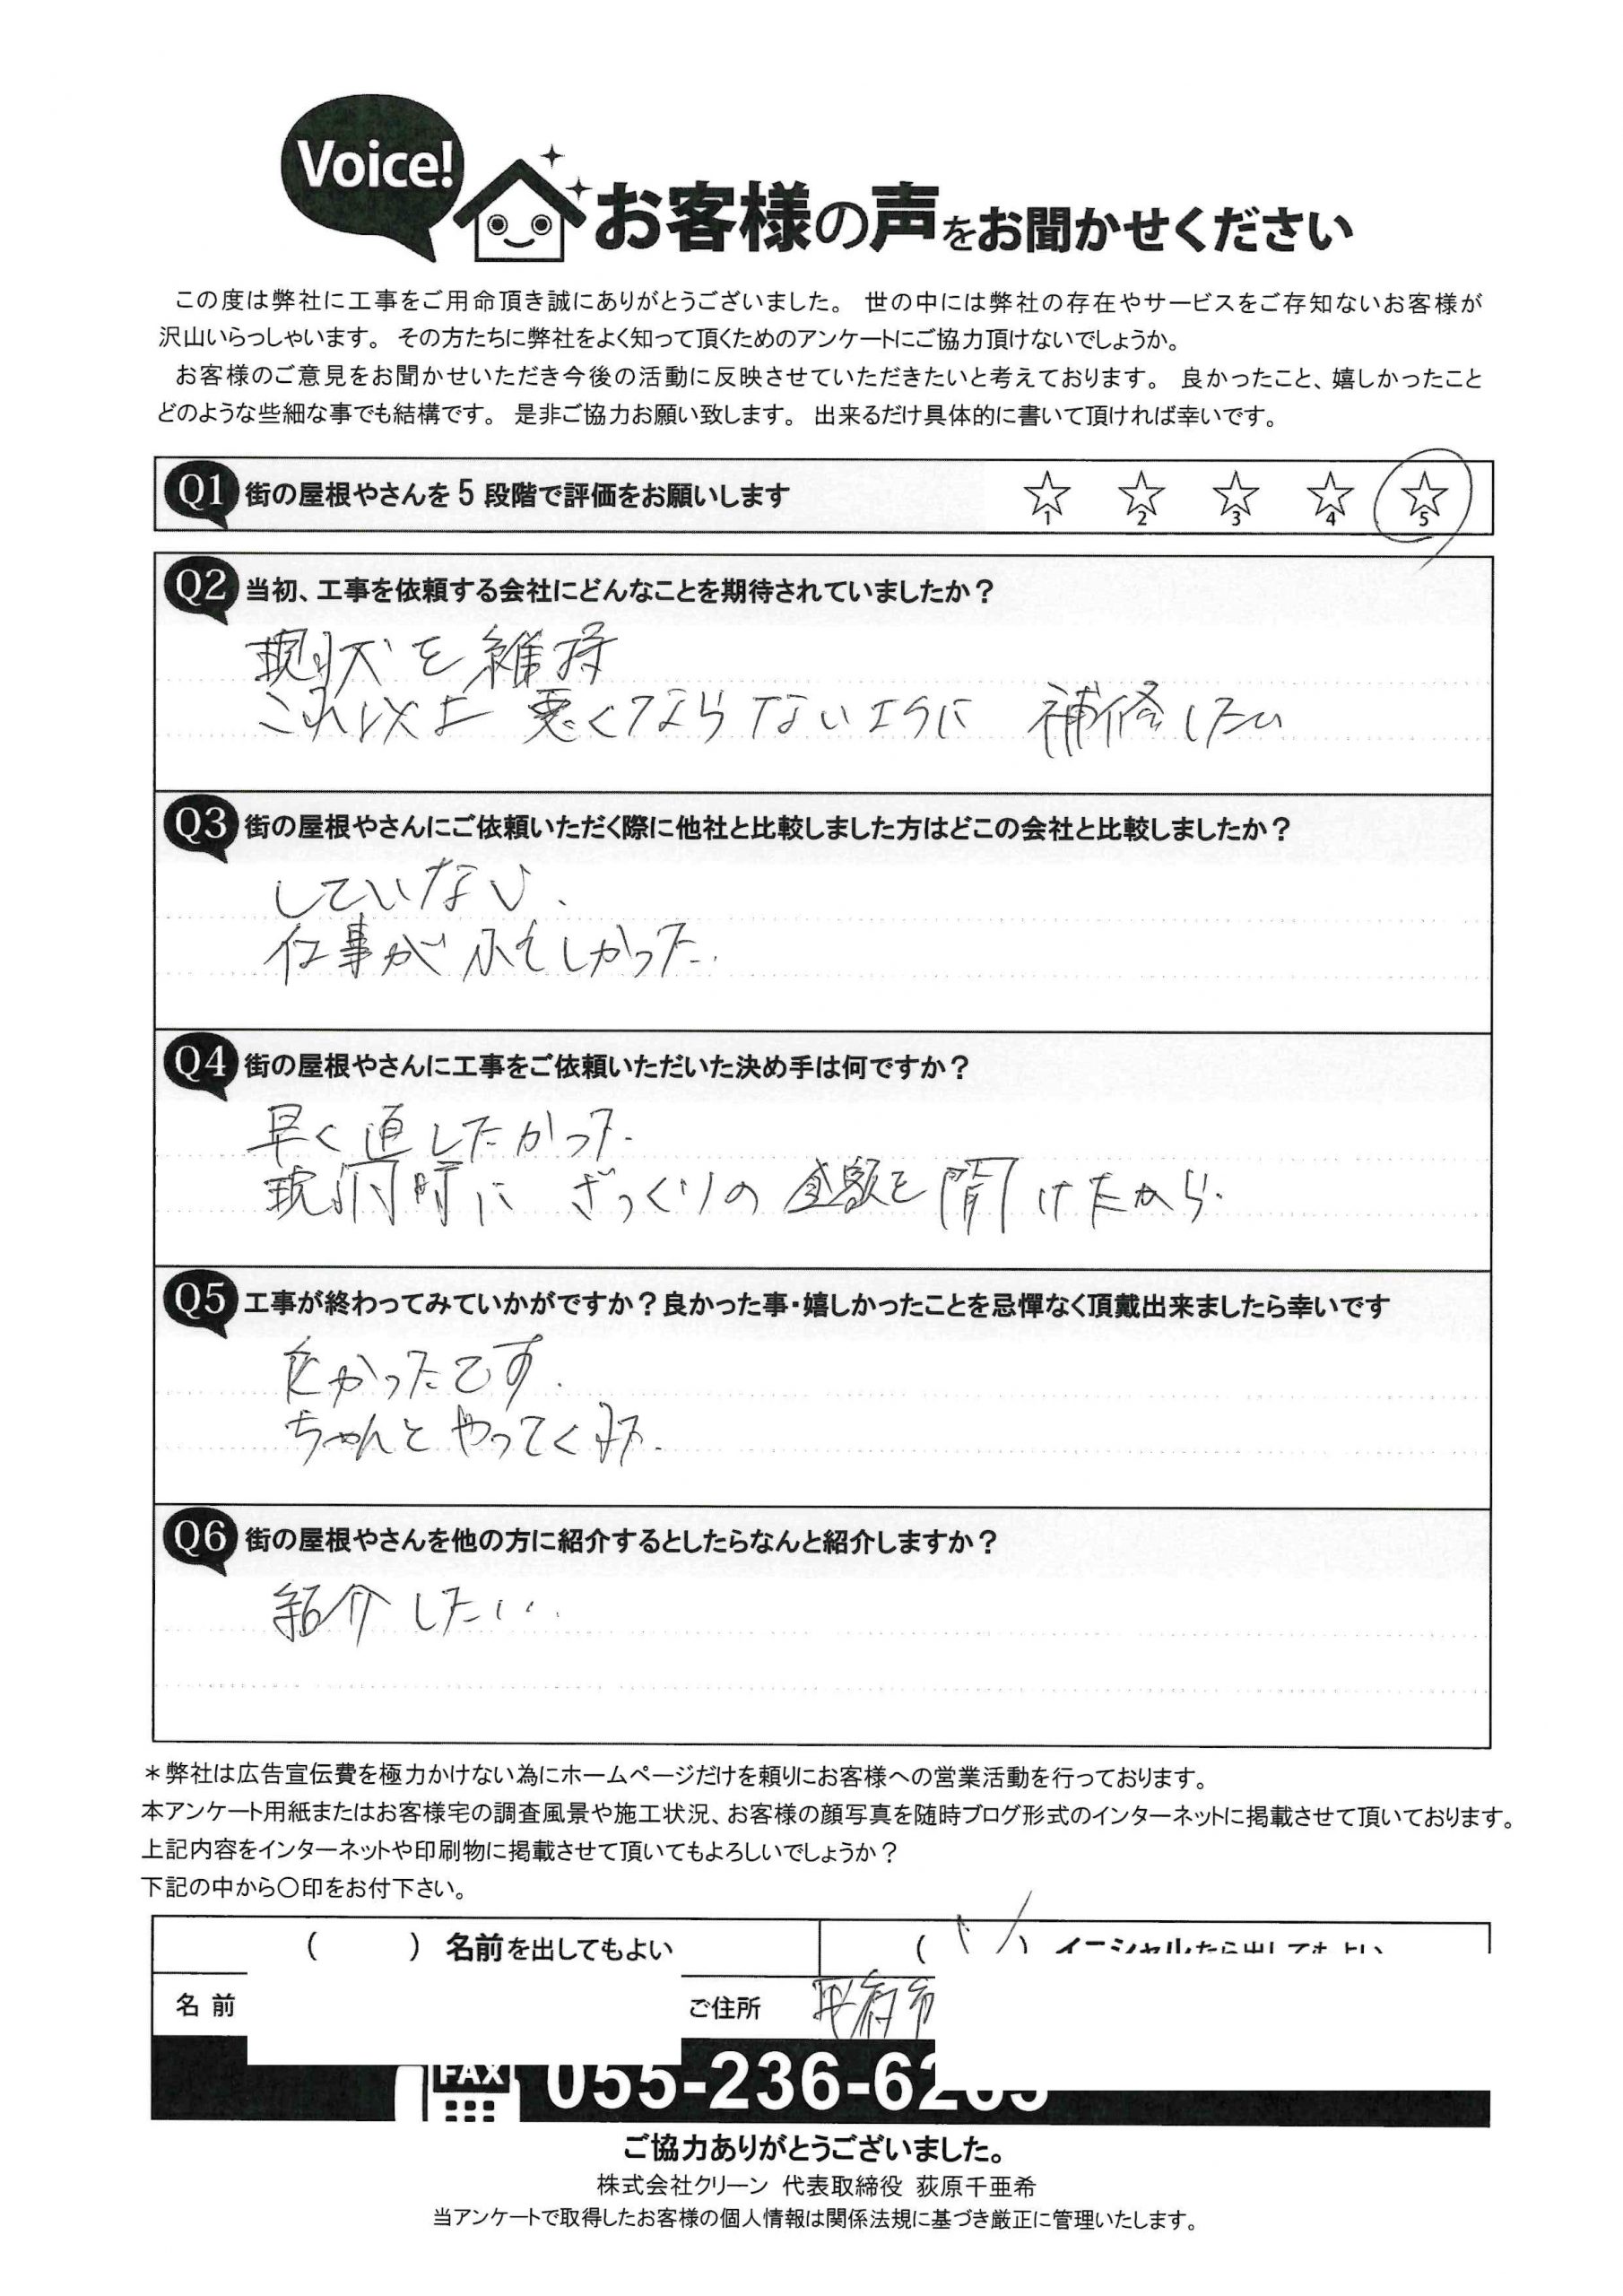 Voice!
お客様の声をお聞かせください
この度は弊社に工事をご用命頂き誠にありがとうございました。 世の中には弊社の存在やサービスをご存知ないお客様が
沢山いらっしゃいます。 その方たちに弊社をよく知って頂くためのアンケートにご協力頂けないでしょうか。
お客様のご意見をお聞かせいただき今後の活動に反映させていただきたいと考えております。 良かったこと、嬉しかったこと
どのような些細な事でも結構です。 是非ご協力お願い致します。 出来るだけ具体的に書いて頂ければ幸いです。
Q1 街の屋根やさんを5段階で評価をお願いします 1 2 3 4 5
Q2 当初、工事を依頼する会社にどんなことを期待されていましたか？
現状を維持
これ以上 悪くならないように 補修したい
Q3 街の屋根やさんにご依頼いただく際に他社と比較しました方はどこの会社と比較しましたか？
していない、
仕事がいそがしかった.
Q4 街の屋根やさんに工事をご依頼いただいた決め手は何ですか？
早く直したかった.
訪問時に ざっくりの金額を聞けたから.
Q5 工事が終わってみていかがですか？良かった事・嬉しかったことを忌憚なく頂戴出来ましたら幸いです
良かったです.
ちゃんとやってくれた.
Q6 街の屋根やさんを他の方に紹介するとしたらなんと紹介しますか？
紹介したい.
＊弊社は広告宣伝費を極力かけない為にホームページだけを頼りにお客様への営業活動を行っております。
本アンケート用紙またはお客様宅の調査風景や施工状況、お客様の顔写真を随時ブログ形式のインターネットに掲載させて頂いております。
上記内容をインターネットや印刷物に掲載させて頂いてもよろしいでしょうか？
下記の中から〇印をお付下さい。
（ ）名前を出してもよい （ ）イニシャルなら出してもよい
名前 ご住所 甲府市
FAX 055-236-6
ご協力ありがとうございました。
株式会社クリーン 代表取締役 荻原千亜希
当アンケートで取得したお客様の個人情報は関係法規に基づき厳正に管理いたします。